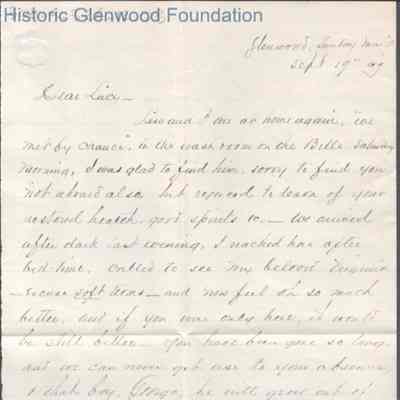 Historic Glenwood Foundation
Glenwood, Sunday
Sept 19th
Dear Lucy —
and I are at home again, we
met by chance, in the wash room on the Belle Saturday
morning, I was glad to find him, sorry to find you
not aboard also but rejoiced to learn of your
restored health, good spirits &c — We arrived
after dark last evening, I reached here after
bed-time, called to see my beloved Virginia
— excuse soft terms — and now feel oh so much
better, and if you were only here, it would
be still better — You have been gone so long
and we can never get use to your absence,
& that boy, George, he will grow out of